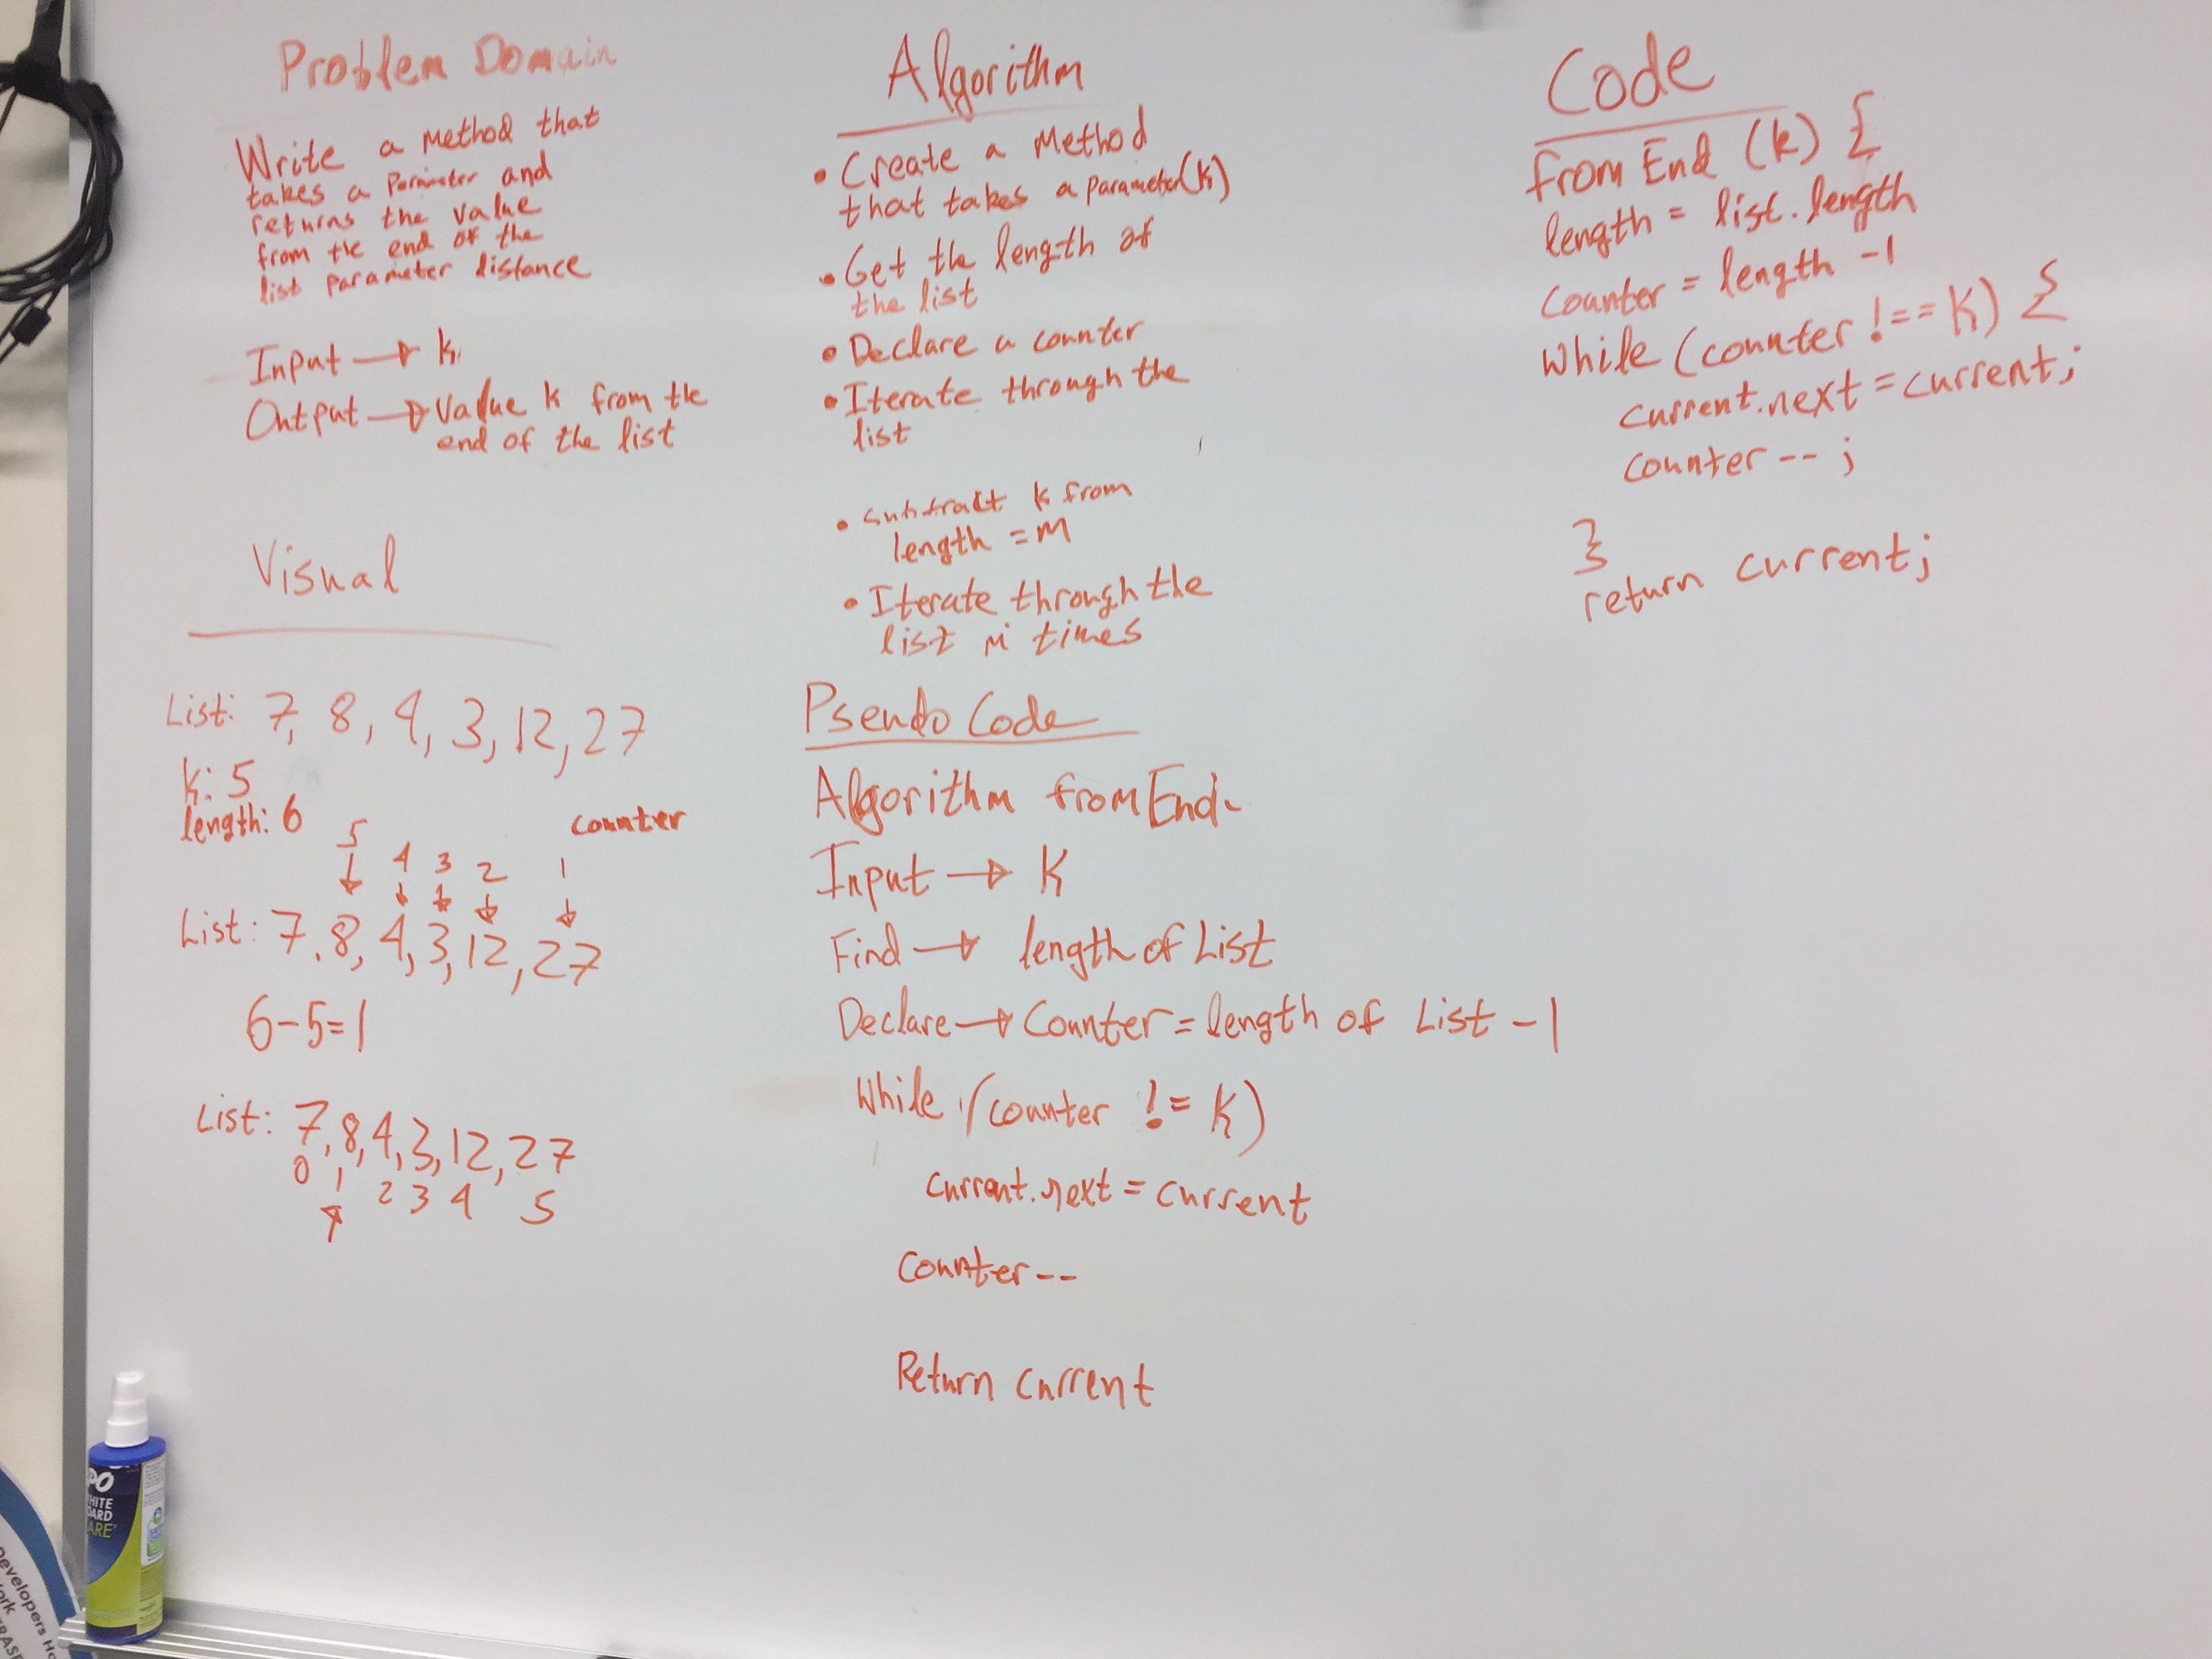 Problem Domain
Write a method that
takes a Perimeter and
returns the value
from the end of the
list parameter distance
Input → k
Output → Value k from the
end of the list
Visual
List: 7, 8, 4, 3, 12, 27
k: 5
length: 6
counter
5 4 3 2 1
List: 7, 8, 4, 3, 12, 27
6-5=1
List: 7, 8, 4, 3, 12, 27
0 1 2 3 4 5
Algorithm
• Create a Method
that takes a parameter(k)
• Get the length of
the list
• Declare a counter
• Iterate through the
list
• subtract k from
length = M
• Iterate through the
list M times
Pseudo Code
Algorithm fromEnd
Input → K
Find → length of List
Declare → Counter = length of List -1
While (counter != K)
current.next = current
Counter--
Return current
Code
from End (k) {
length = list.length
counter = length -1
While (counter !== K) {
current.next = current;
counter--;
}
return current;
PO
HITE
OARD
ARE
Developers